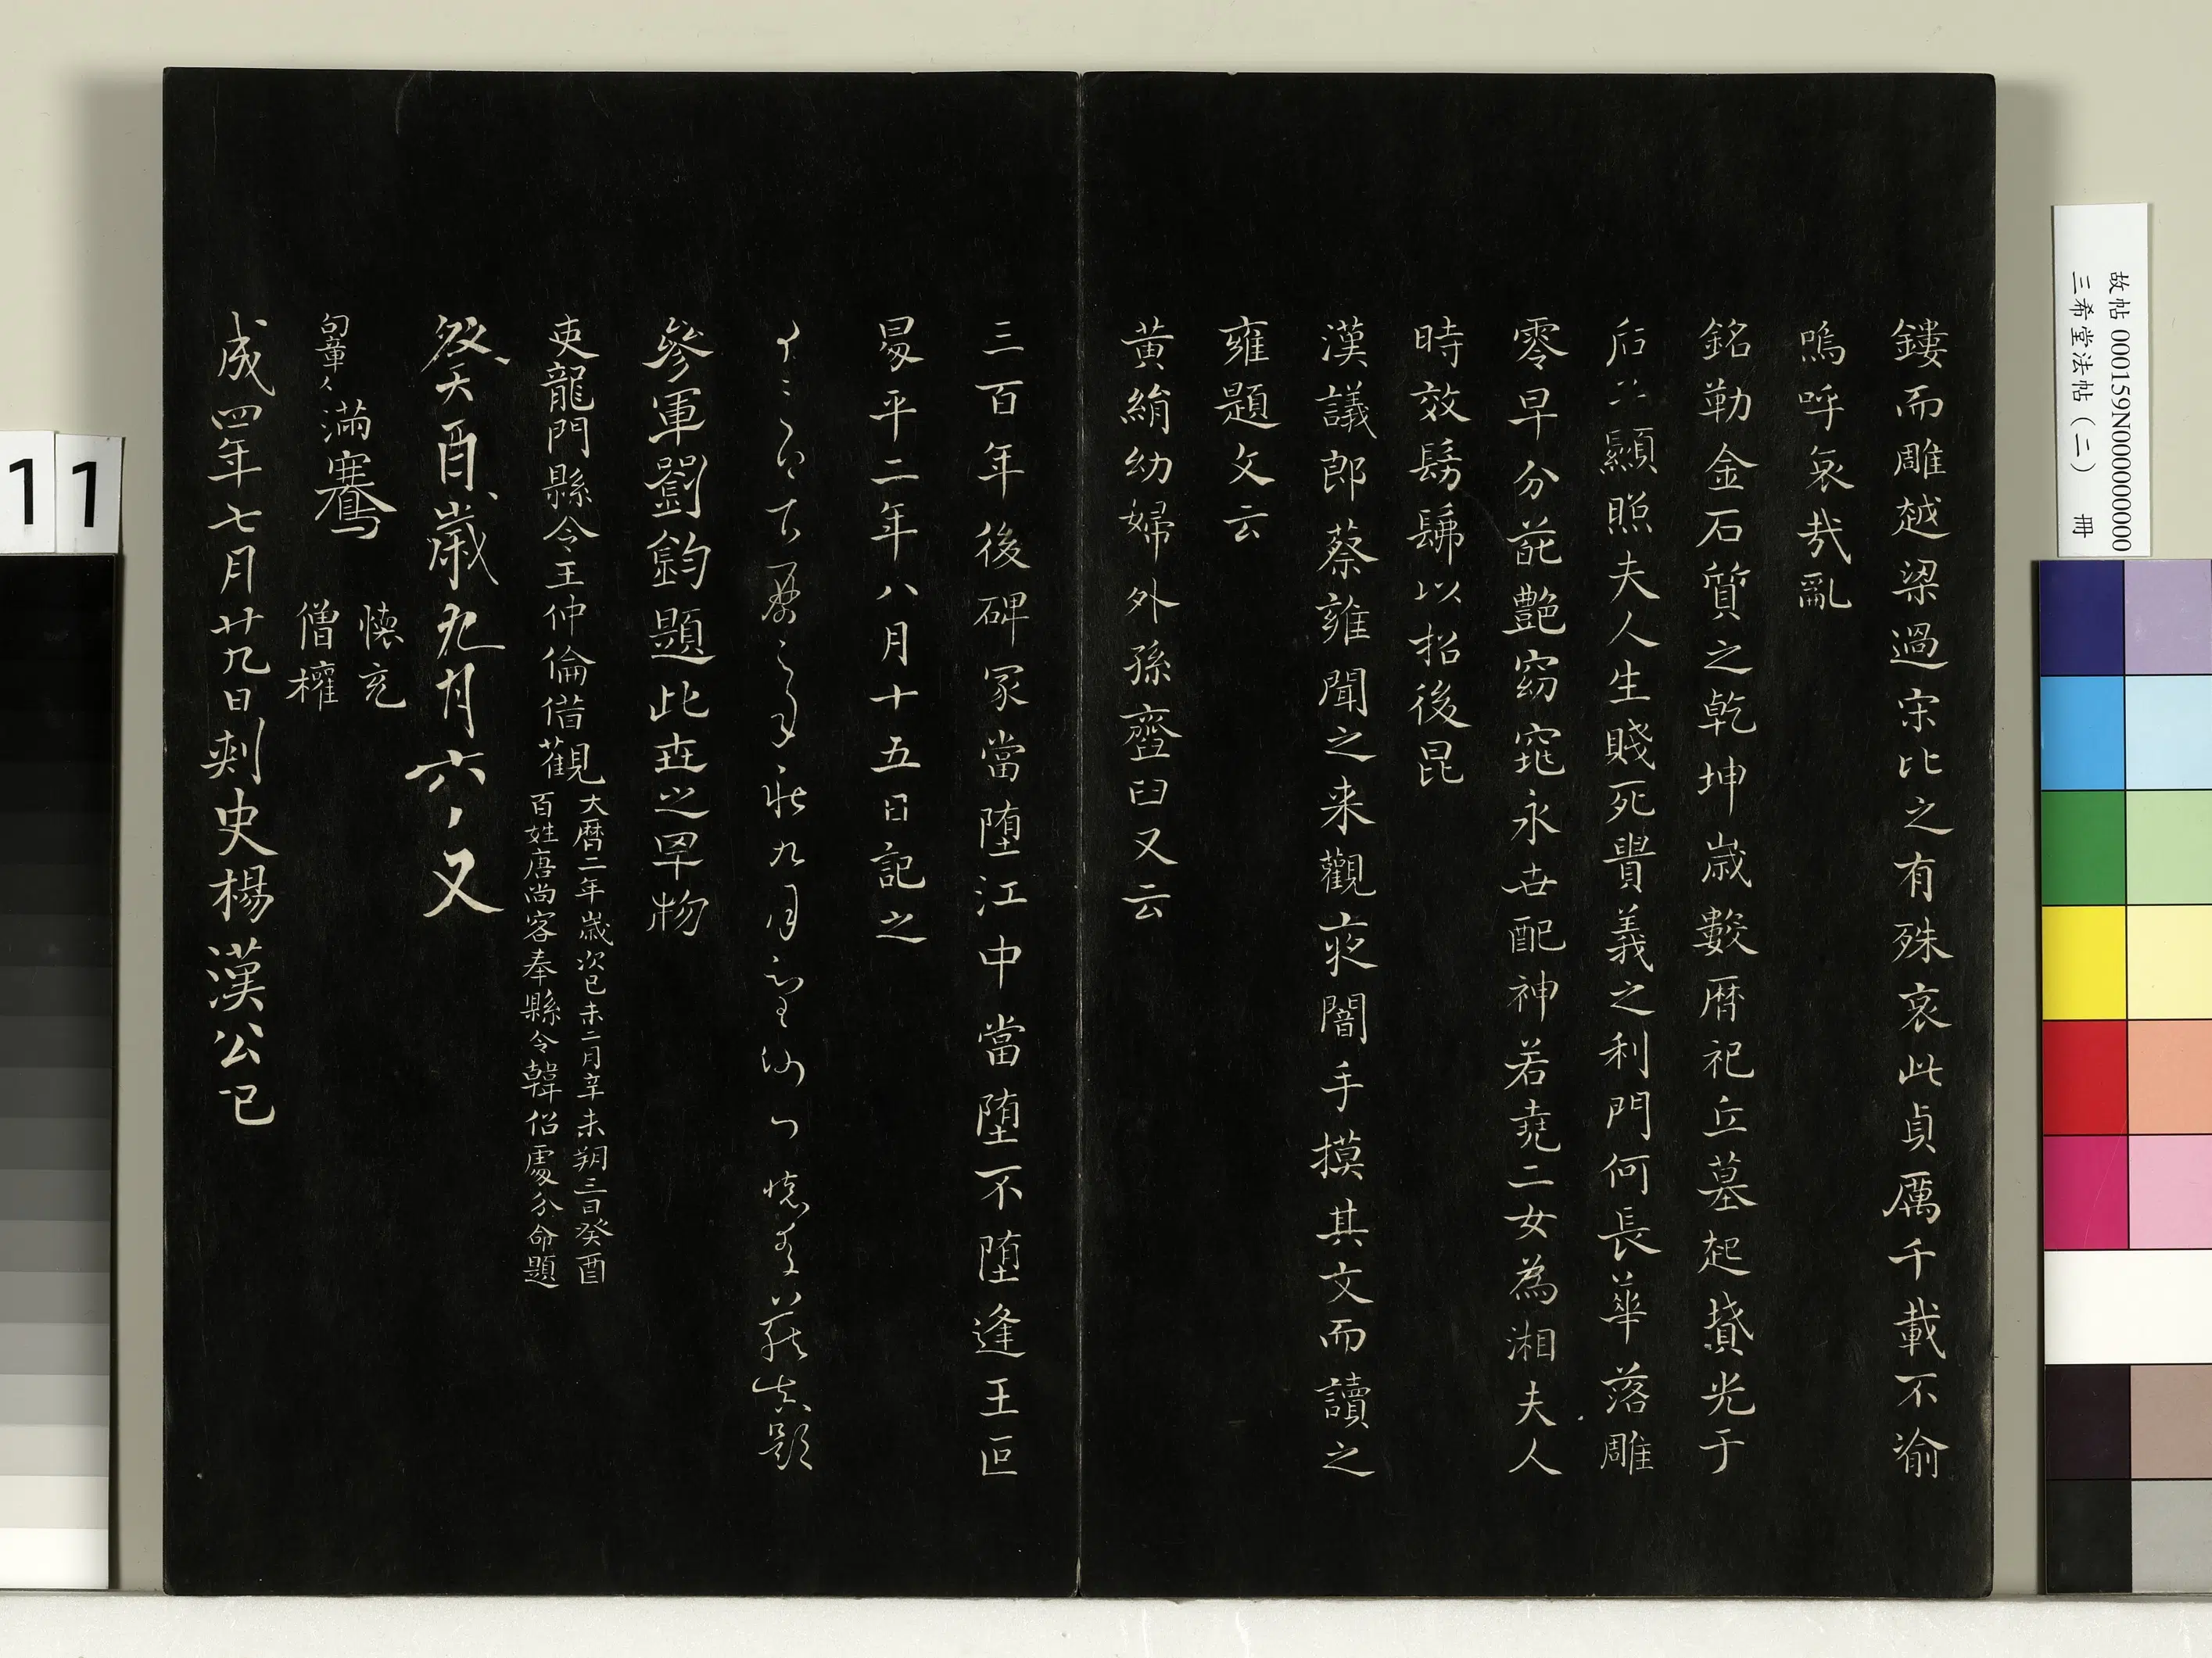 鏤而雕越梁過宋比之有殊哀此貞厲千載不渝
嗚呼哀哉亂
銘勒金石質之乾坤歲數曆祀丘墓起墳光于
后土顯照夫人生賤死貴義之利門何長華落雕
零早分葩艷窈窕永世配神若堯二女為湘夫人
時效髣髴以招後昆
漢議郎蔡雍聞之来觀夜闇手摸其文而讀之
雍題文云
黃絹幼婦外孫齏臼又云
三百年後碑冢當墮江中當墮不墮逢王叵
昜平二年八月十五日記之
九月
題
參軍劉鈞題此世之罕物
吏龍門縣令王仲倫借觀
大曆二年歲次己未二月辛未朔三日癸酉
百姓唐尚客奉縣令韓侶處分命題
癸酉歲九月六日又
句章令
滿騫
懷充
僧權
成四年七月廿九日刾史楊漢公記
故帖 000159N000000000
三希堂法帖(二) 冊
11